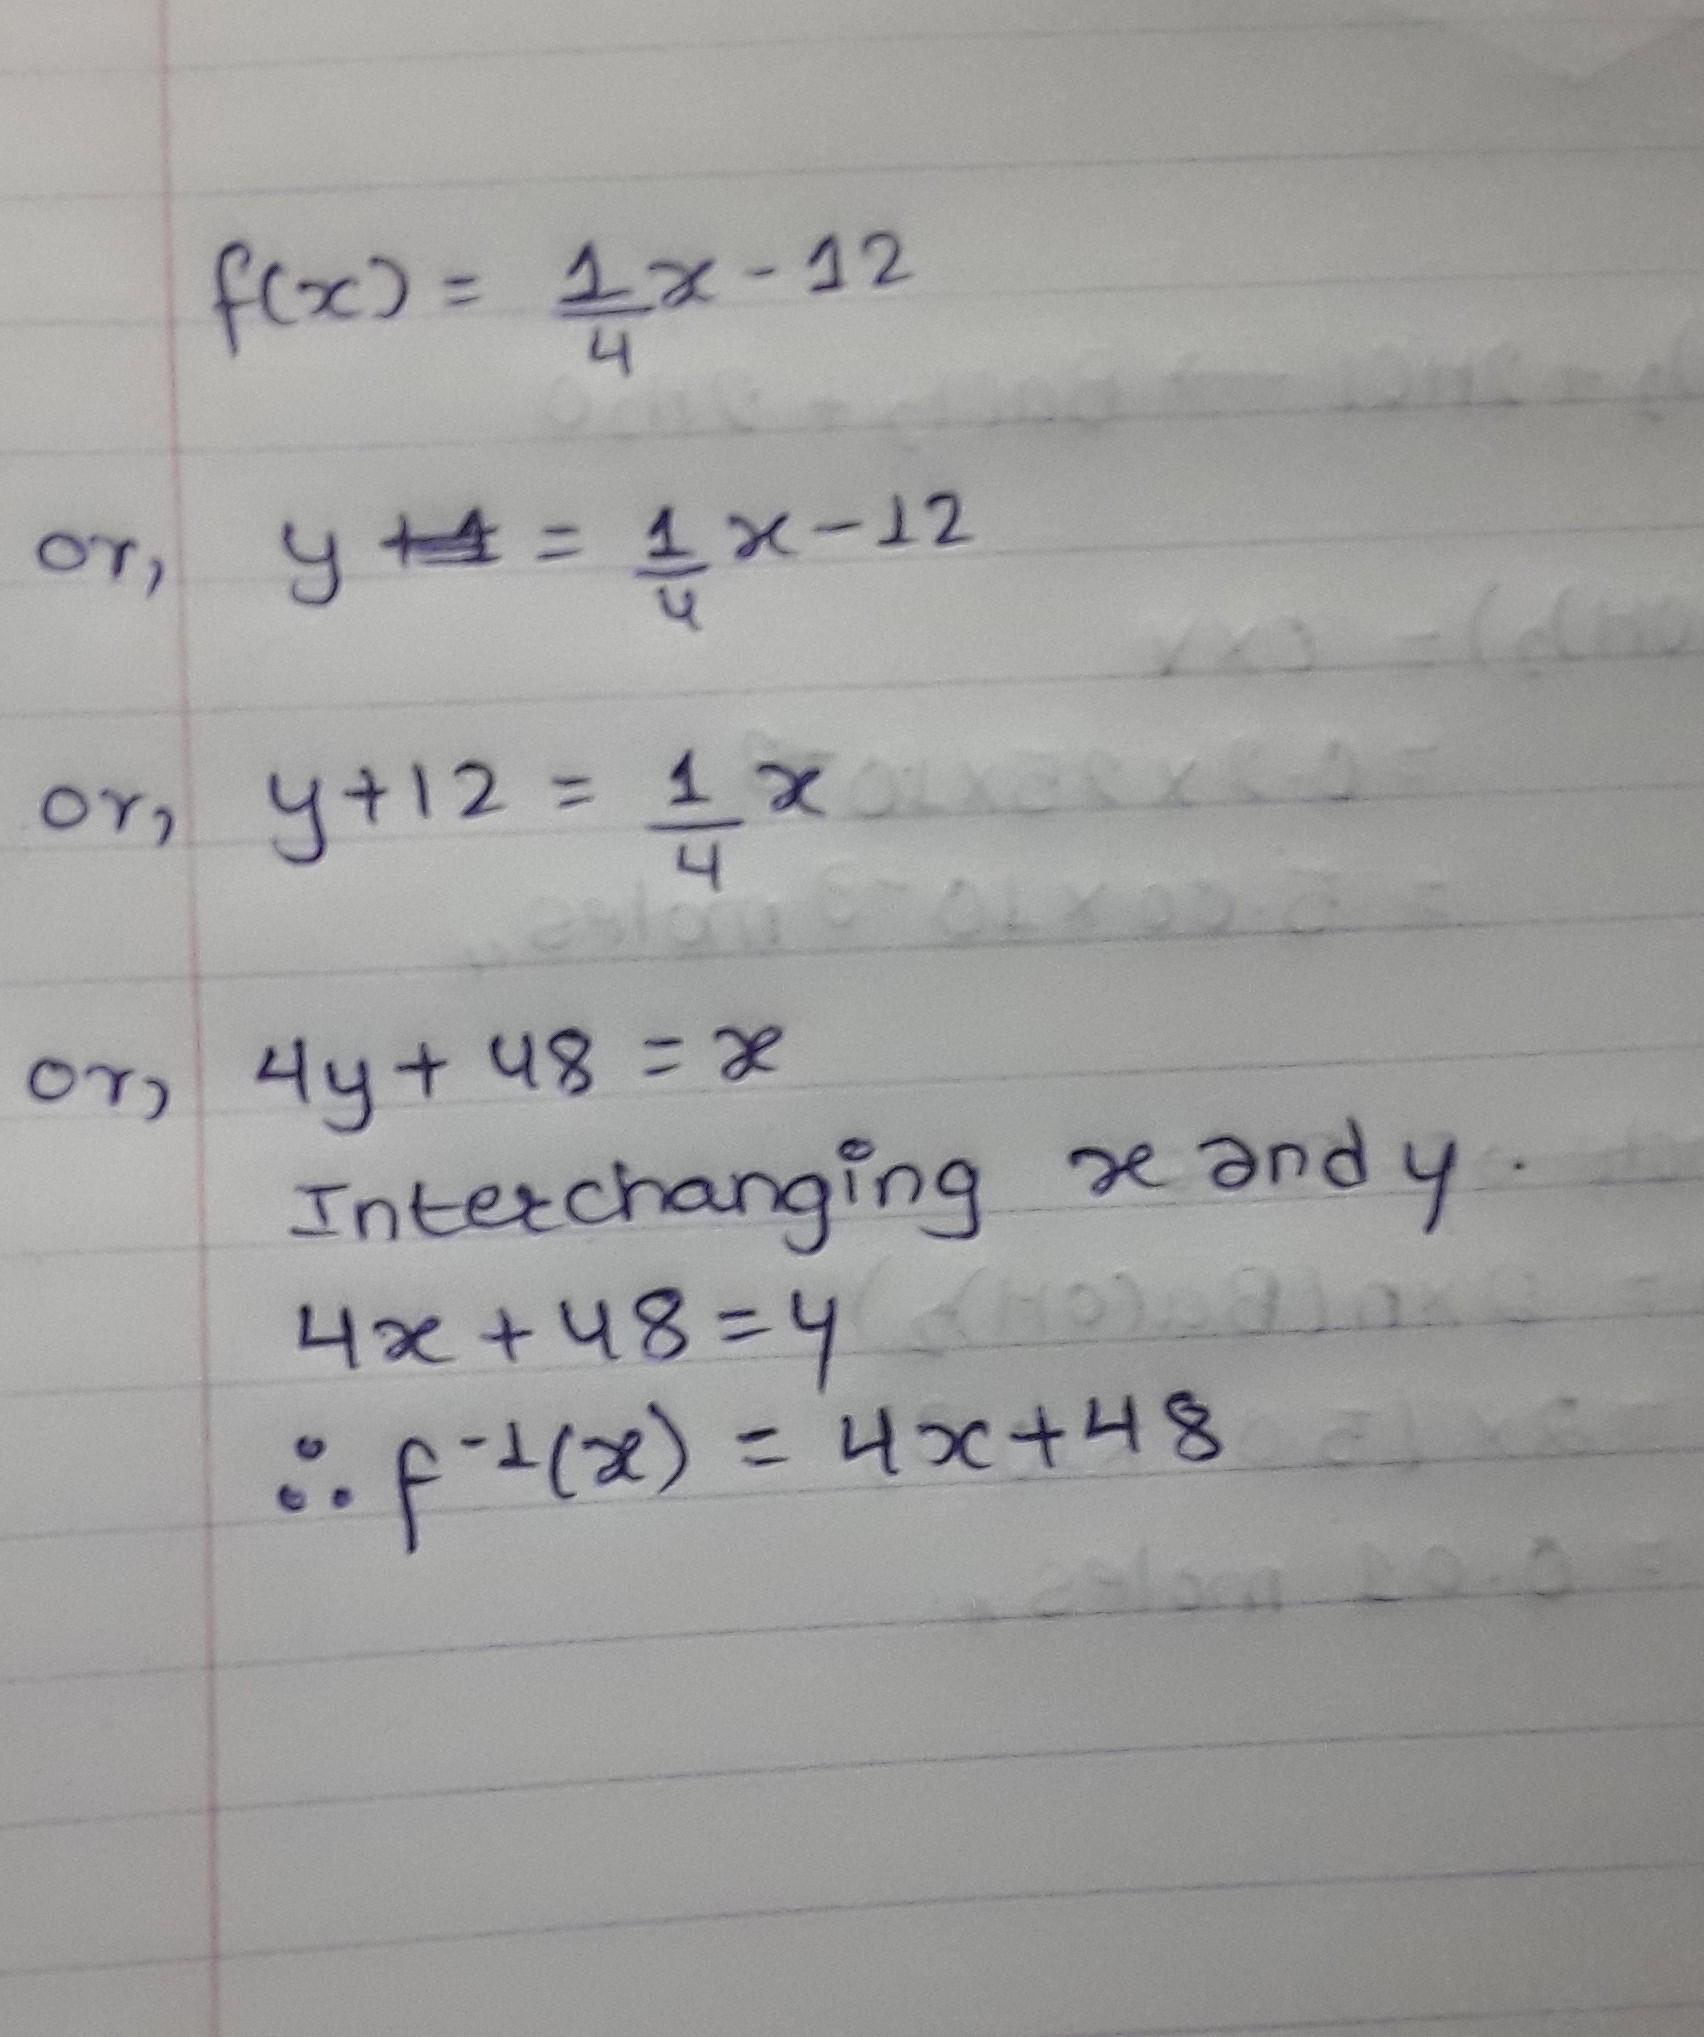 f(x) = 1/4 x - 12
or, y = 1/4 x - 12
or, y + 12 = 1/4 x
or, 4y + 48 = x
Interchanging x and y.
4x + 48 = y
∴ f⁻¹(x) = 4x + 48